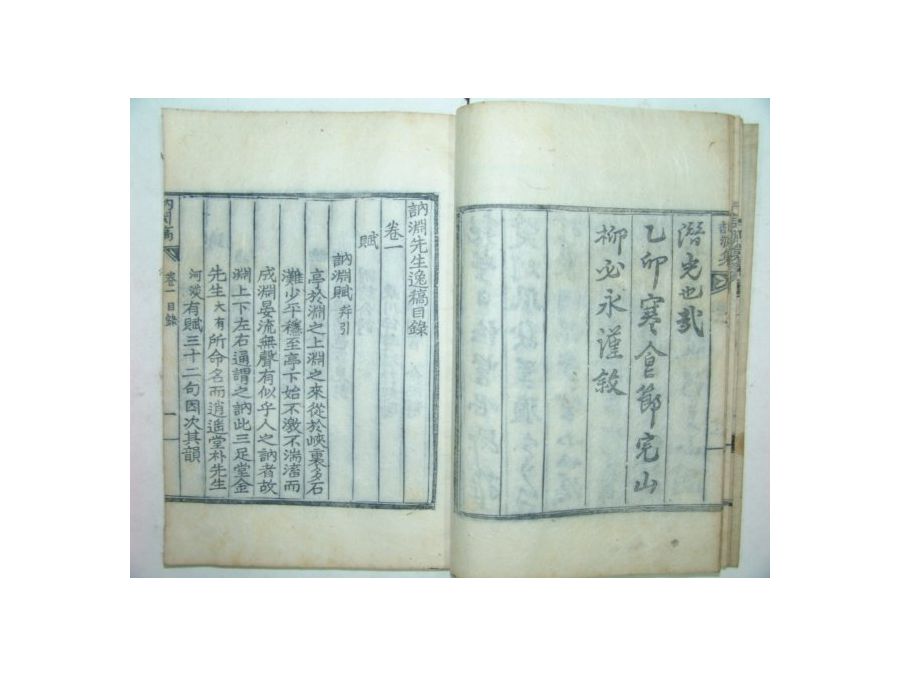 潛光也哉
乙卯寒食節完山
柳必永謹敘
訥淵先生逸稿目錄
卷一
賦
訥淵賦 幷引
亭於淵之上淵之來從於峽裏多石
灘少平穩至亭下始不激不湍渟而
成淵晏流無聲有似乎人之訥者故
淵上下左右通謂之訥此三足堂金
先生大有所命名而逍遙堂朴先生
河淡有賦三十二句因次其韻
卷一 目錄
一